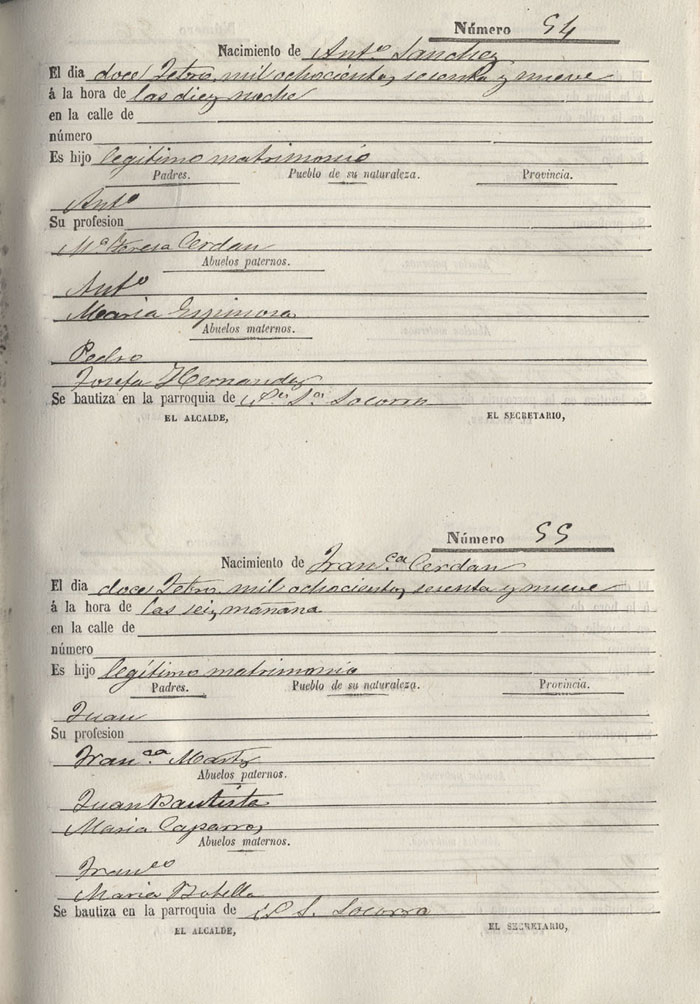 Número 54
Nacimiento de Antº Sanchez
El dia doce Febro. mil ochocientos sesenta y nueve
á la hora de las diez noche
en la calle de
número
Es hijo legitimo matrimonio
Padres. Pueblo de su naturaleza. Provincia.
Antº
Su profesion
Mª Teresa Cerdan
Abuelos paternos.
Antº
Maria Espinosa
Abuelos maternos.
Pedro
Josefa Hernandez
Se bautiza en la parroquia de Socorro
EL ALCALDE, EL SECRETARIO,
Número 55
Nacimiento de Franca Cerdan
El dia doce Febro. mil ochocientos sesenta y nueve
á la hora de las seis mañana
en la calle de
número
Es hijo legítimo matrimonio
Padres. Pueblo de su naturaleza. Provincia.
Juan
Su profesion
Franca Martz
Abuelos paternos.
Juan Bautista
Maria Caparros
Abuelos maternos.
Franco
Maria Botella
Se bautiza en la parroquia de S. Socorro
EL ALCALDE, EL SECRETARIO,